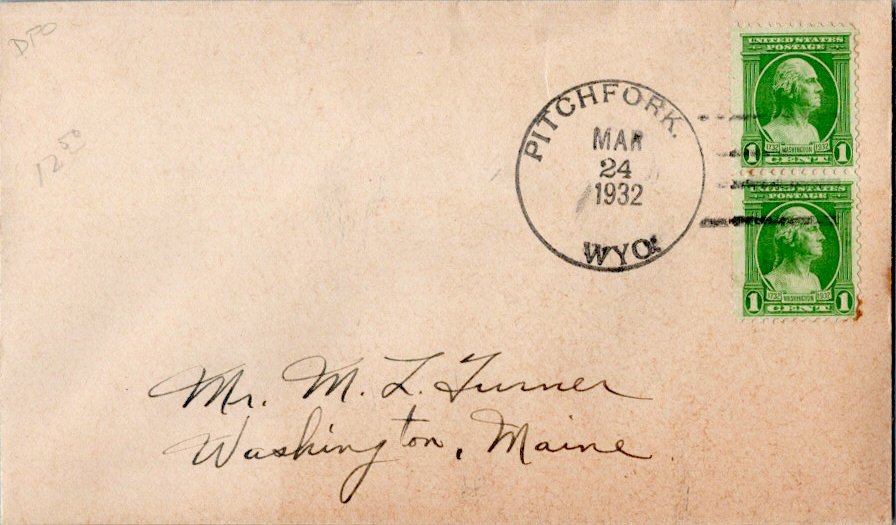 DPO
12.50
PITCHFORK.
MAR
24
1932
WYO.
UNITED STATES
POSTAGE
1732 WASHINGTON 1932
1 CENT 1
UNITED STATES
POSTAGE
1732 WASHINGTON 1932
1 CENT 1
Mr. M. L. Turner
Washington, Maine